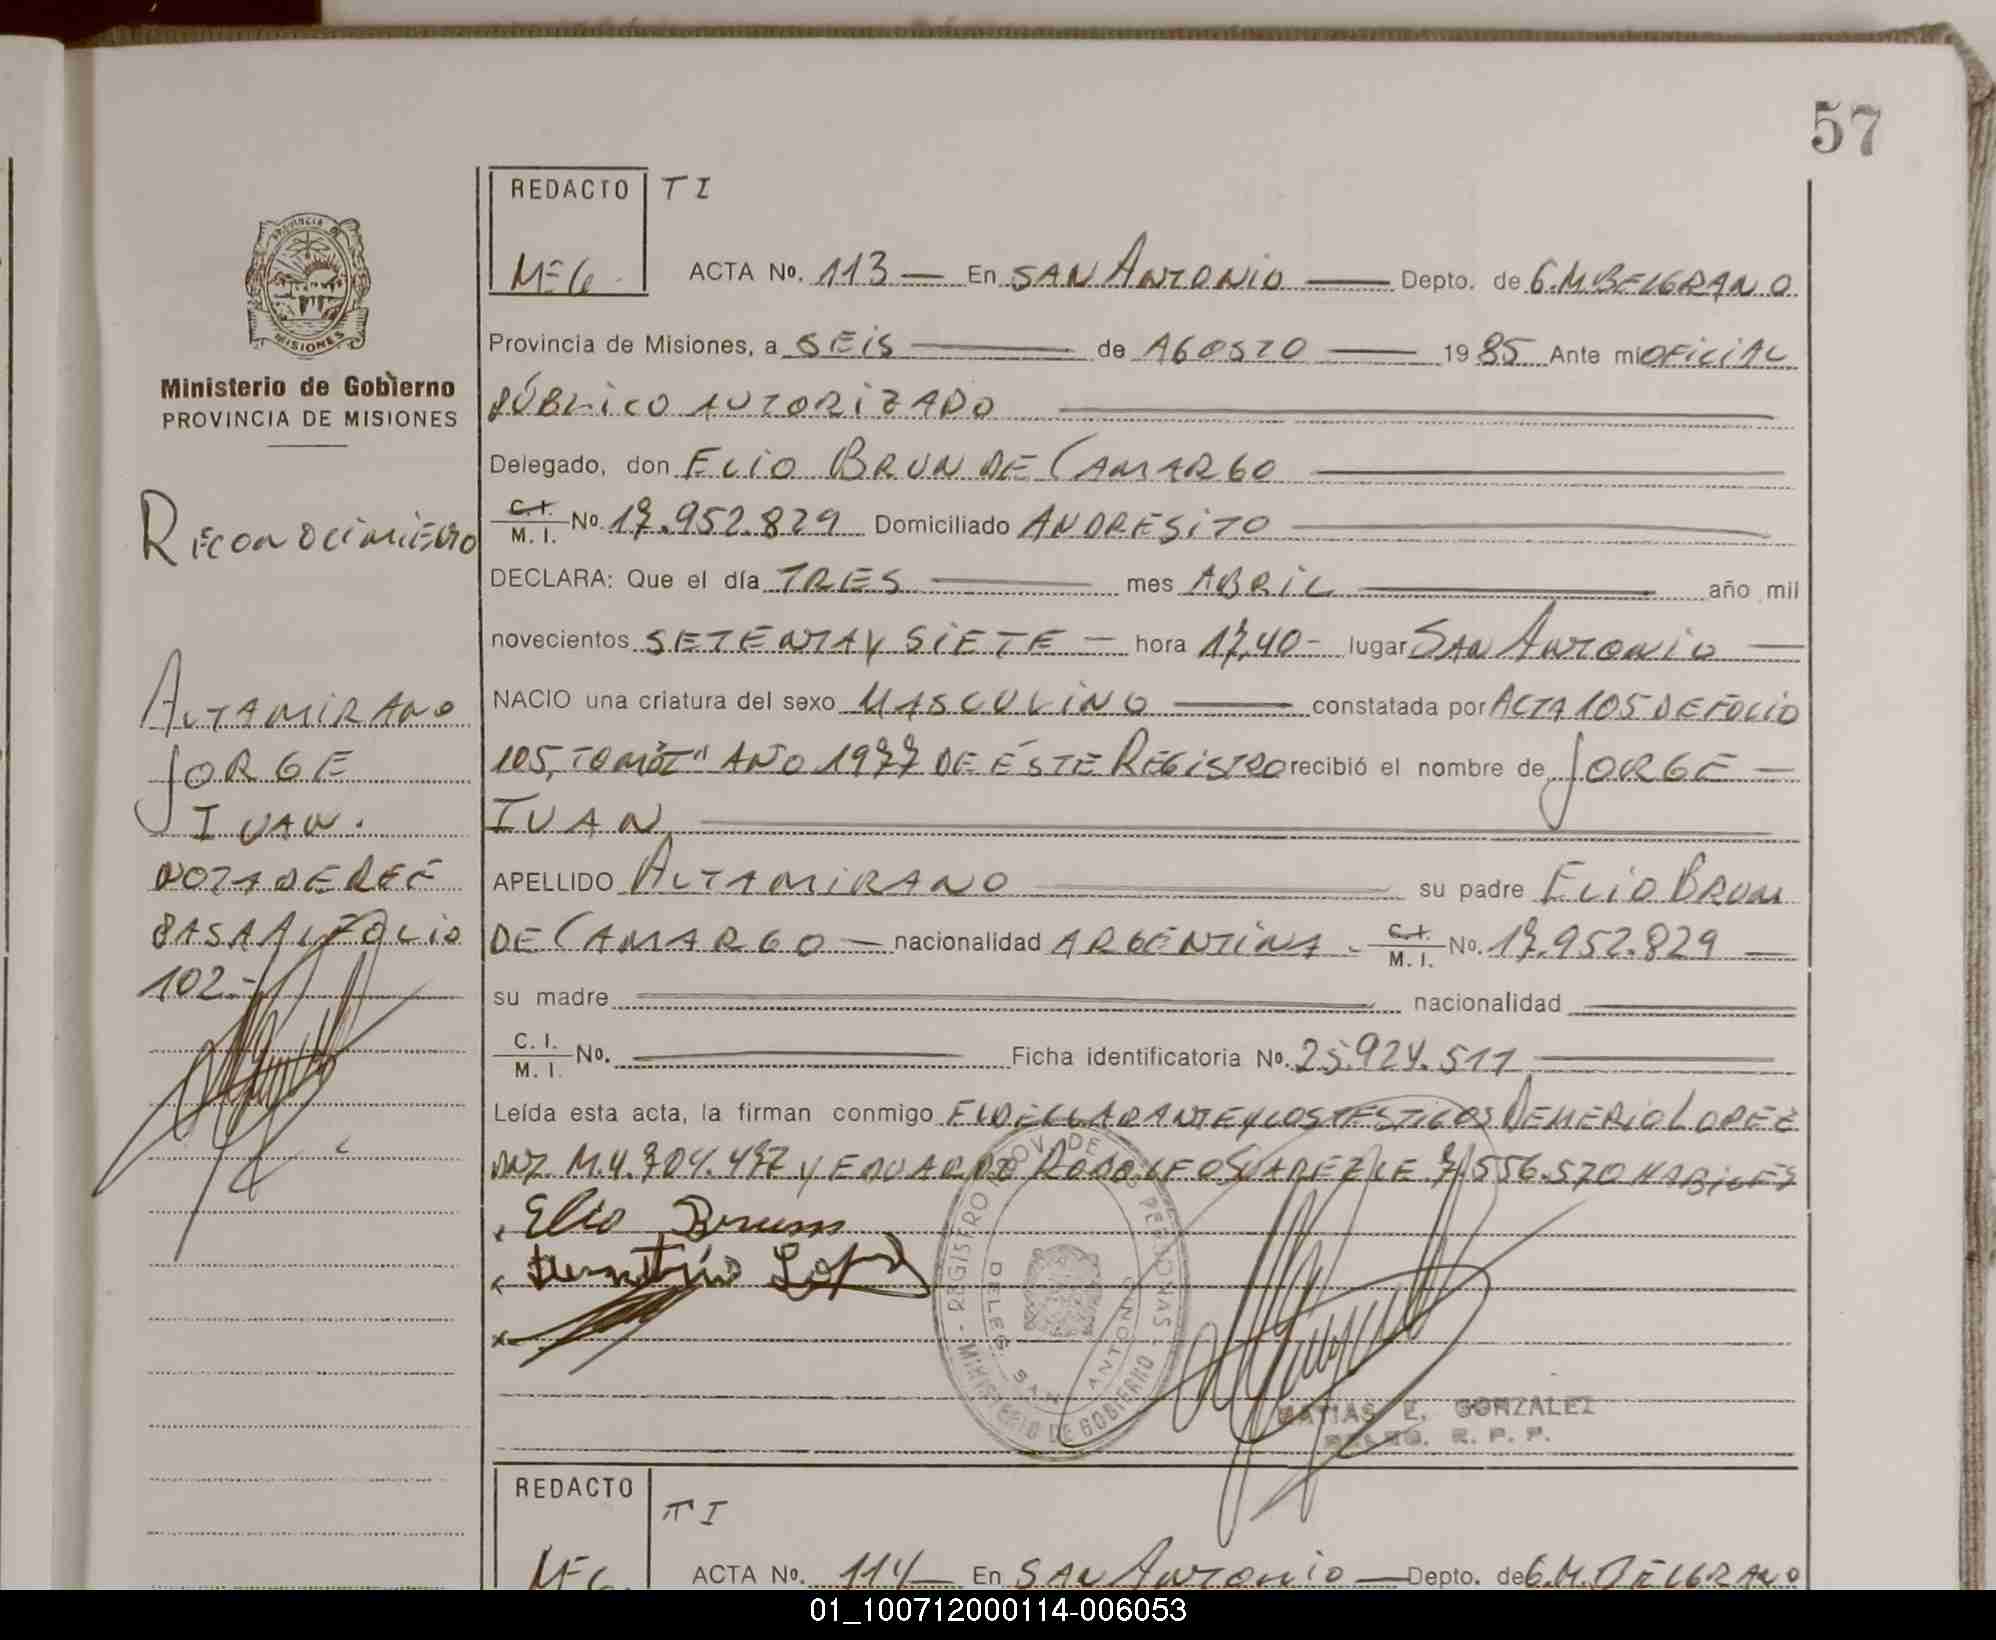 57
REDACTO TI
MEG.
ACTA No. 113 — En SAN ANTONIO — Depto. de G.M.BELGRANO
PROVINCIA DE
MISIONES
Ministerio de Gobierno
PROVINCIA DE MISIONES
Provincia de Misiones, a SEIS — de AGOSTO — 1985 Ante mi OFICIAL
PÚBLICO AUTORIZADO —
Delegado, don ELIO BRUN DE CAMARGO —
C.I. / M. I. No. 17.952.829 Domiciliado ANDRESITO —
RECONOCIMIENTO
DECLARA: Que el día TRES — mes ABRIL — año mil
novecientos SETENTA Y SIETE — hora 17,40 - lugar SAN ANTONIO —
NACIO una criatura del sexo MASCULINO — constatada por ACTA 105 DE FOLIO
105, TOMO "I" AÑO 1977 DE ÉSTE REGISTRO recibió el nombre de JORGE —
IVAN —
APELLIDO ALTAMIRANO — su padre ELIO BRUN
DE CAMARGO — nacionalidad ARGENTINA - C.I. / M. I. No. 17.952.829 —
su madre — nacionalidad —
C. I. / M. I. No. — Ficha identificatoria No. 25.924.511 —
Leída esta acta, la firman conmigo EL DECLARANTE Y LOS TESTIGOS DEMERIO LOPEZ
DNI. M.4.704.497 Y EDUARDO RODOLFO SUAREZ LE 7.556.570 HABILES
ALTAMIRANO
JORGE
IVAN.
NOTA DE REF
PASA AL FOLIO
102.-
Elio Brum
Demetrio Lopez
REGISTRO PROV. DE PERSONAS - MINISTERIO DE GOBIERNO
DELEG. SAN ANTONIO
MATIAS E. GONZALEZ
DELEG. R. P. P.
REDACTO TI
MEG.
ACTA No. 114 — En SAN ANTONIO — Depto. de G.M.BELGRANO
01_100712000114-006053